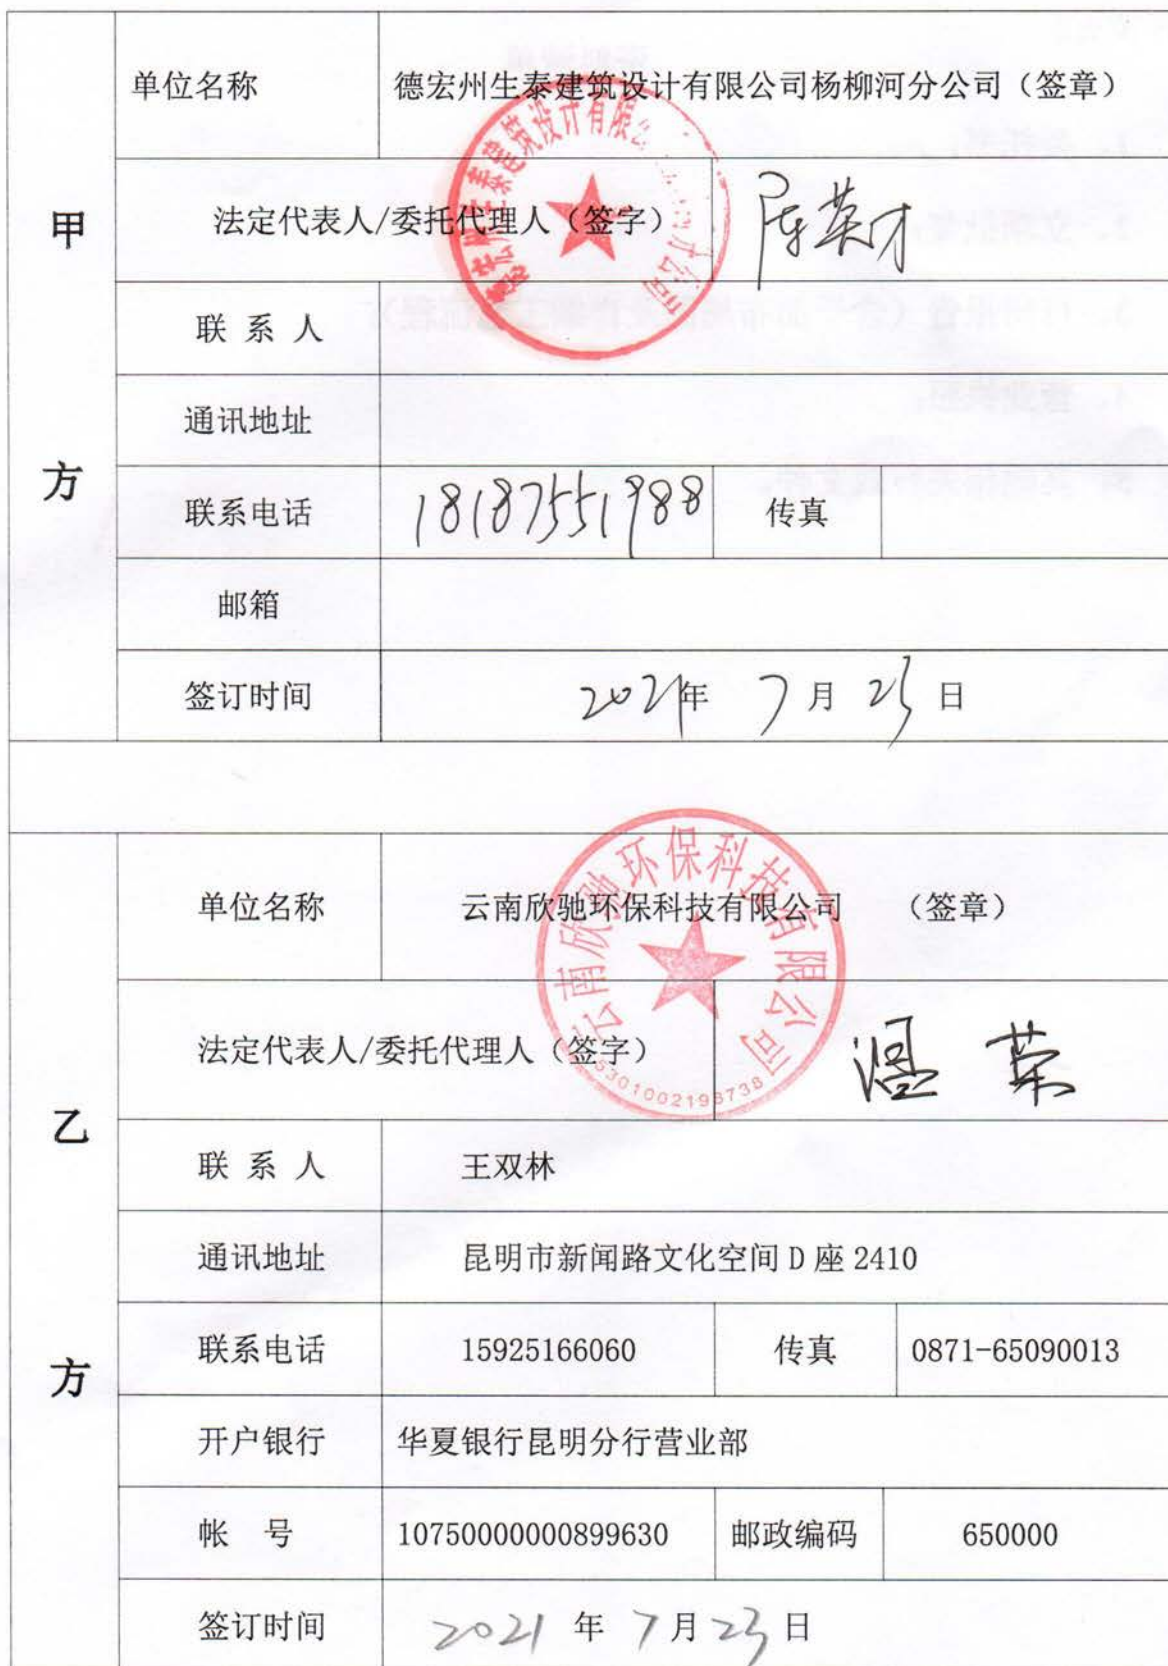 甲方
单位名称 德宏州生泰建筑设计有限公司杨柳河分公司（签章）
法定代表人/委托代理人（签字） 陈英才
联 系 人
通讯地址
联系电话 18187551988 传真
邮箱
签订时间 2021年 7月 23日
乙方
单位名称 云南欣驰环保科技有限公司 （签章）
云南欣驰环保科技有限公司
法定代表人/委托代理人（签字） 温荣
联 系 人 王双林
通讯地址 昆明市新闻路文化空间 D 座 2410
联系电话 15925166060 传真 0871-65090013
开户银行 华夏银行昆明分行营业部
帐 号 10750000000899630 邮政编码 650000
签订时间 2021 年 7月 23日